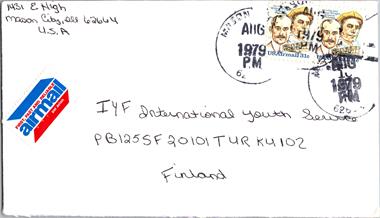 1431 E High
Mason City, Ill 62664
U.S.A
MASON
AUG
1979
PM
62
AUG
1979
PM
626
USAirmail 31c
airmail
IYF International Youth Service
PB125SF20101 TUR KU 102
Finland